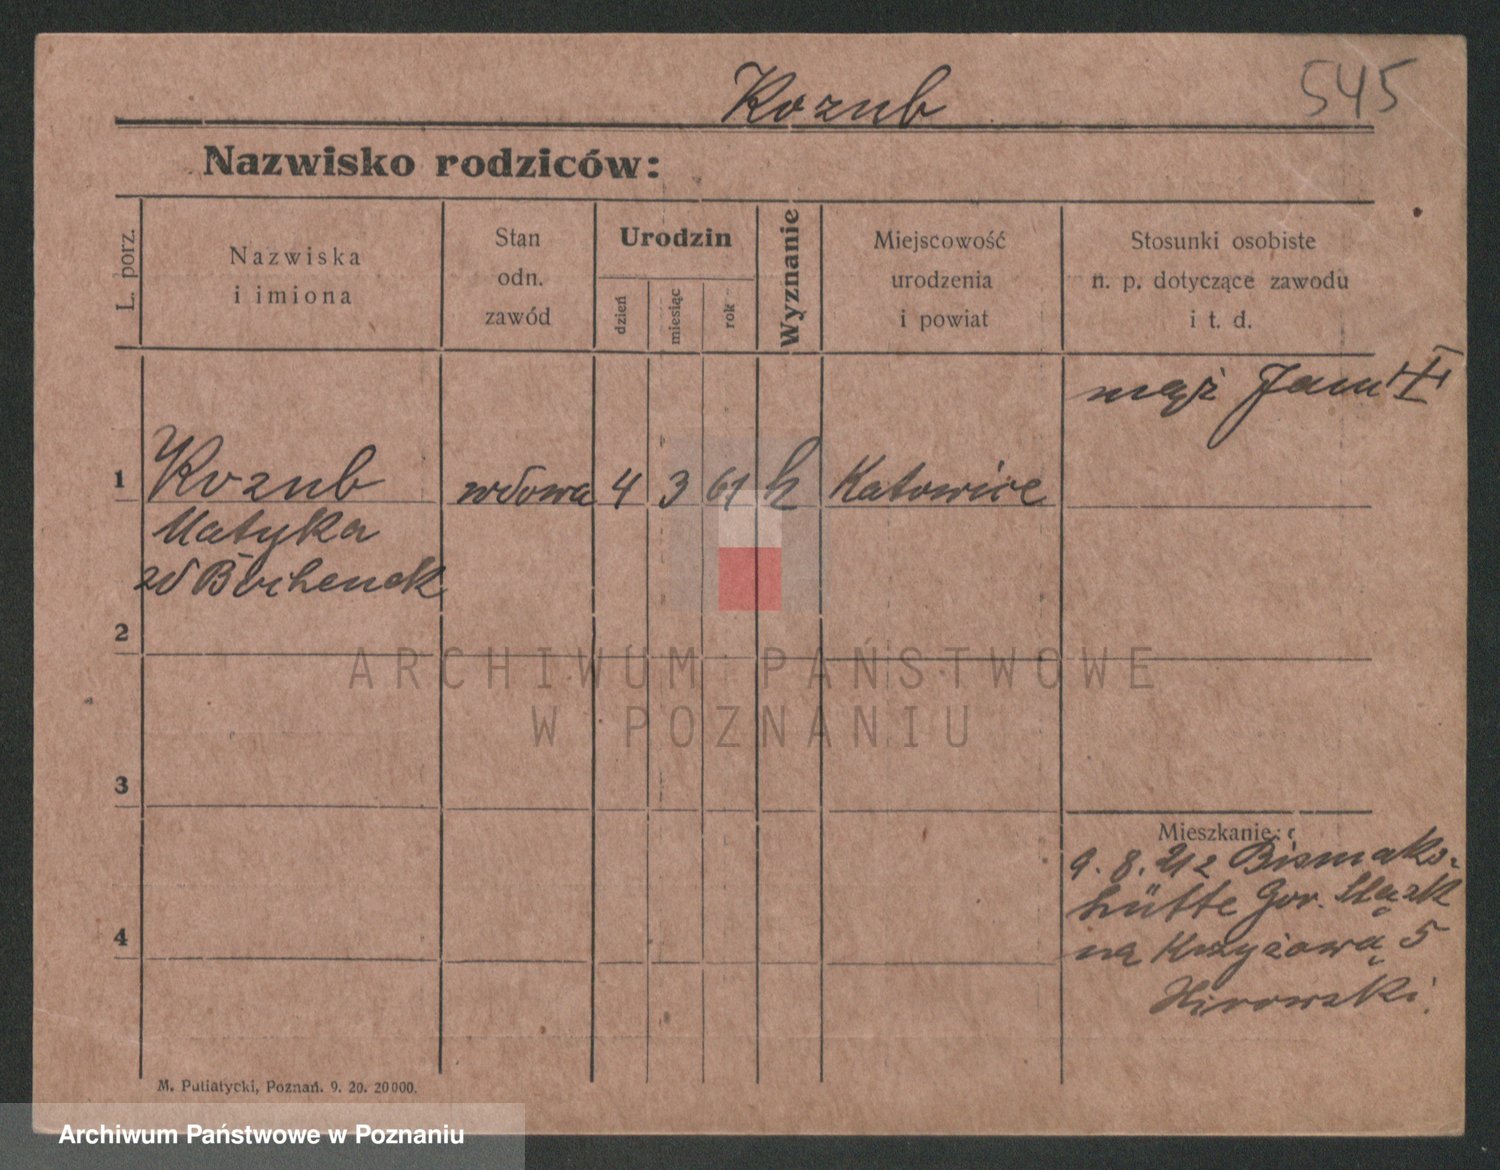 Kozub
545
Nazwisko rodziców:
L. porz.
Nazwiska
i imiona
Stan
odn.
zawód
Urodzin
dzień
miesiąc
rok
Wyznanie
Miejscowość
urodzenia
i powiat
Stosunki osobiste
n. p. dotyczące zawodu
i t. d.
mąż Jan
1
Kozub
wdowa 4 3 61 k Katowice
Matylka
zd Bochenek
2
3
4
Mieszkanie:
9. 8. 212 Bismarks-
hütte Gór. Śląsk
na Krzyżową 5
ARCHIWUM PAŃSTWOWE
W POZNANIU
M. Putiatycki, Poznań. 9. 20. 20000.
Archiwum Państwowe w Poznaniu